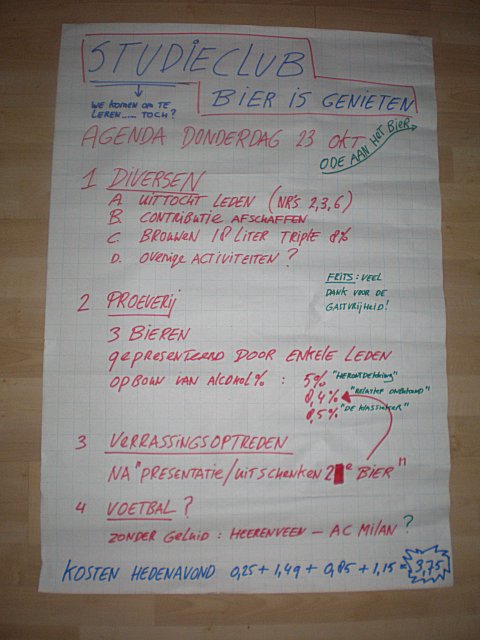 STUDIECLUB
BIER IS GENIETEN
WE KOMEN OM TE
LEREN..... TOCH?
AGENDA DONDERDAG 23 OKT
ODE AAN HET BIER
1 DIVERSEN
A. UITTOCHT LEDEN (NR'S 2,3,6)
B. CONTRIBUTIE AFSCHAFFEN
C. BROUWEN 18 LITER TRIPLE 8%
D. OVERIGE ACTIVITEITEN?
FRITS: VEEL
DANK VOOR DE
GASTVRIJHEID!
2 PROEVERIJ
3 BIEREN
GEPRESENTEERD DOOR ENKELE LEDEN
OPBOUW VAN ALCOHOL%: 5% "HERONTDEKKING"
8,4% "RELATIEF ONBEKEND"
8,5% "DE KLASSIEKER"
3 VERRASSINGSOPTREDEN
NA "PRESENTATIE/UITSCHENKEN 2e BIER"
4 VOETBAL?
ZONDER GELUID: HEERENVEEN - AC MILAN?
KOSTEN HEDENAVOND 0,25 + 1,49 + 0,85 + 1,15 = 3,75